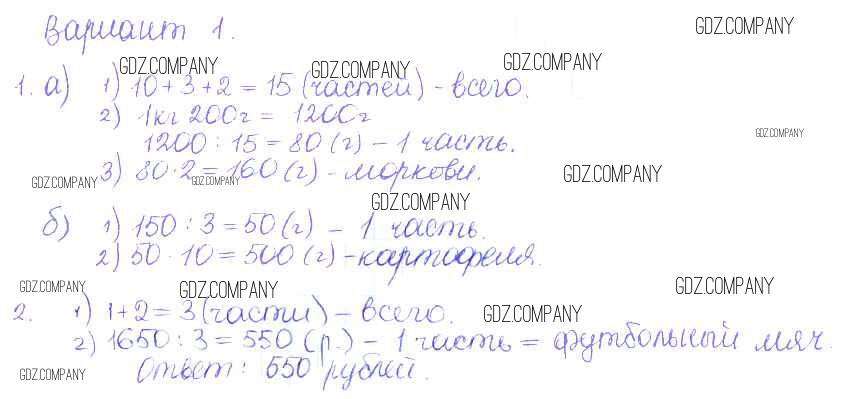 Вариант 1.
GDZ.COMPANY
GDZ.COMPANY GDZ.COMPANY GDZ.COMPANY
1. а) 1) 10+3+2=15 (частей) - всего.
2) 1кг 200г = 1200г
GDZ.COMPANY
1200 : 15 = 80 (г) - 1 часть.
3) 80·2=160 (г) - моркови.
GDZ.COMPANY GDZ.COMPANY GDZ.COMPANY
GDZ.COMPANY
б) 1) 150 : 3 = 50 (г) - 1 часть.
2) 50 · 10 = 500 (г) - картофеля.
GDZ.COMPANY GDZ.COMPANY GDZ.COMPANY
2. 1) 1+2= 3 (части) - всего.
GDZ.COMPANY
2) 1650 : 3 = 550 (р.) - 1 часть = футбольный мяч.
GDZ.COMPANY
Ответ: 550 рублей.